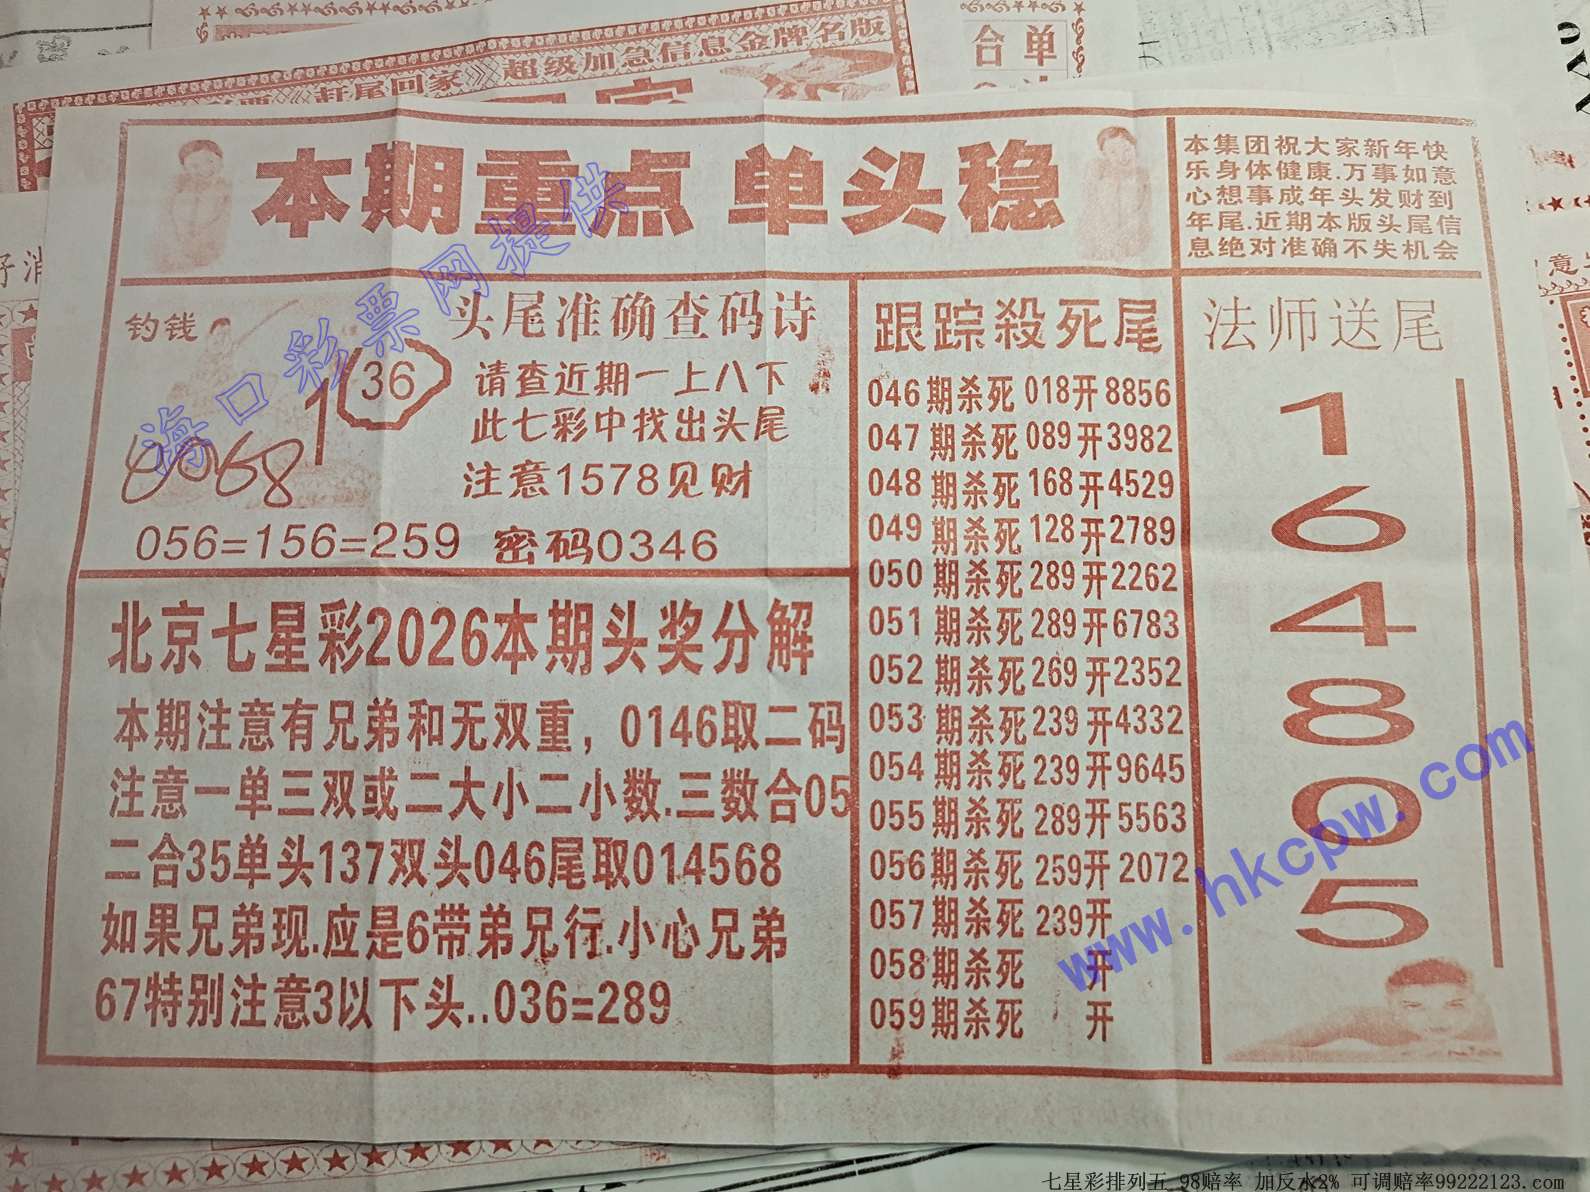 赶尾回家》超级加急信息金牌名版
合单
好消
本期重点 单头稳
本集团祝大家新年快
乐身体健康.万事如意
心想事成年头发财到
年尾.近期本版头尾信
息绝对准确不失机会
海口彩票网提供
钓钱
36
8068
头尾准确查码诗
请查近期一上八下
此七彩中找出头尾
注意1578见财
056=156=259 密码0346
北京七星彩2026本期头奖分解
本期注意有兄弟和无双重，0146取二码
注意一单三双或二大小二小数.三数合05
二合35单头137双头046尾取014568
如果兄弟现.应是6带弟兄行.小心兄弟
67特别注意3以下头..036=289
跟踪殺死尾
046期杀死018开8856
047期杀死089开3982
048期杀死168开4529
049期杀死128开2789
050期杀死289开2262
051期杀死289开6783
052期杀死269开2352
053期杀死239开4332
054期杀死239开9645
055期杀死289开5563
056期杀死259开2072
057期杀死239开
058期杀死 开
059期杀死 开
法师送尾
1
6
4
8
0
5
www.hkcpw.com
七星彩排列五 98赔率 加反水2% 可调赔率99222123.com